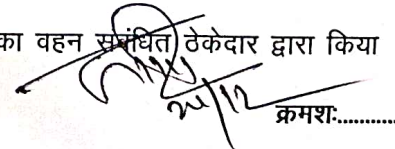 का वहन संबंधित ठेकेदार द्वारा किया
२४/१२
क्रमशः...........